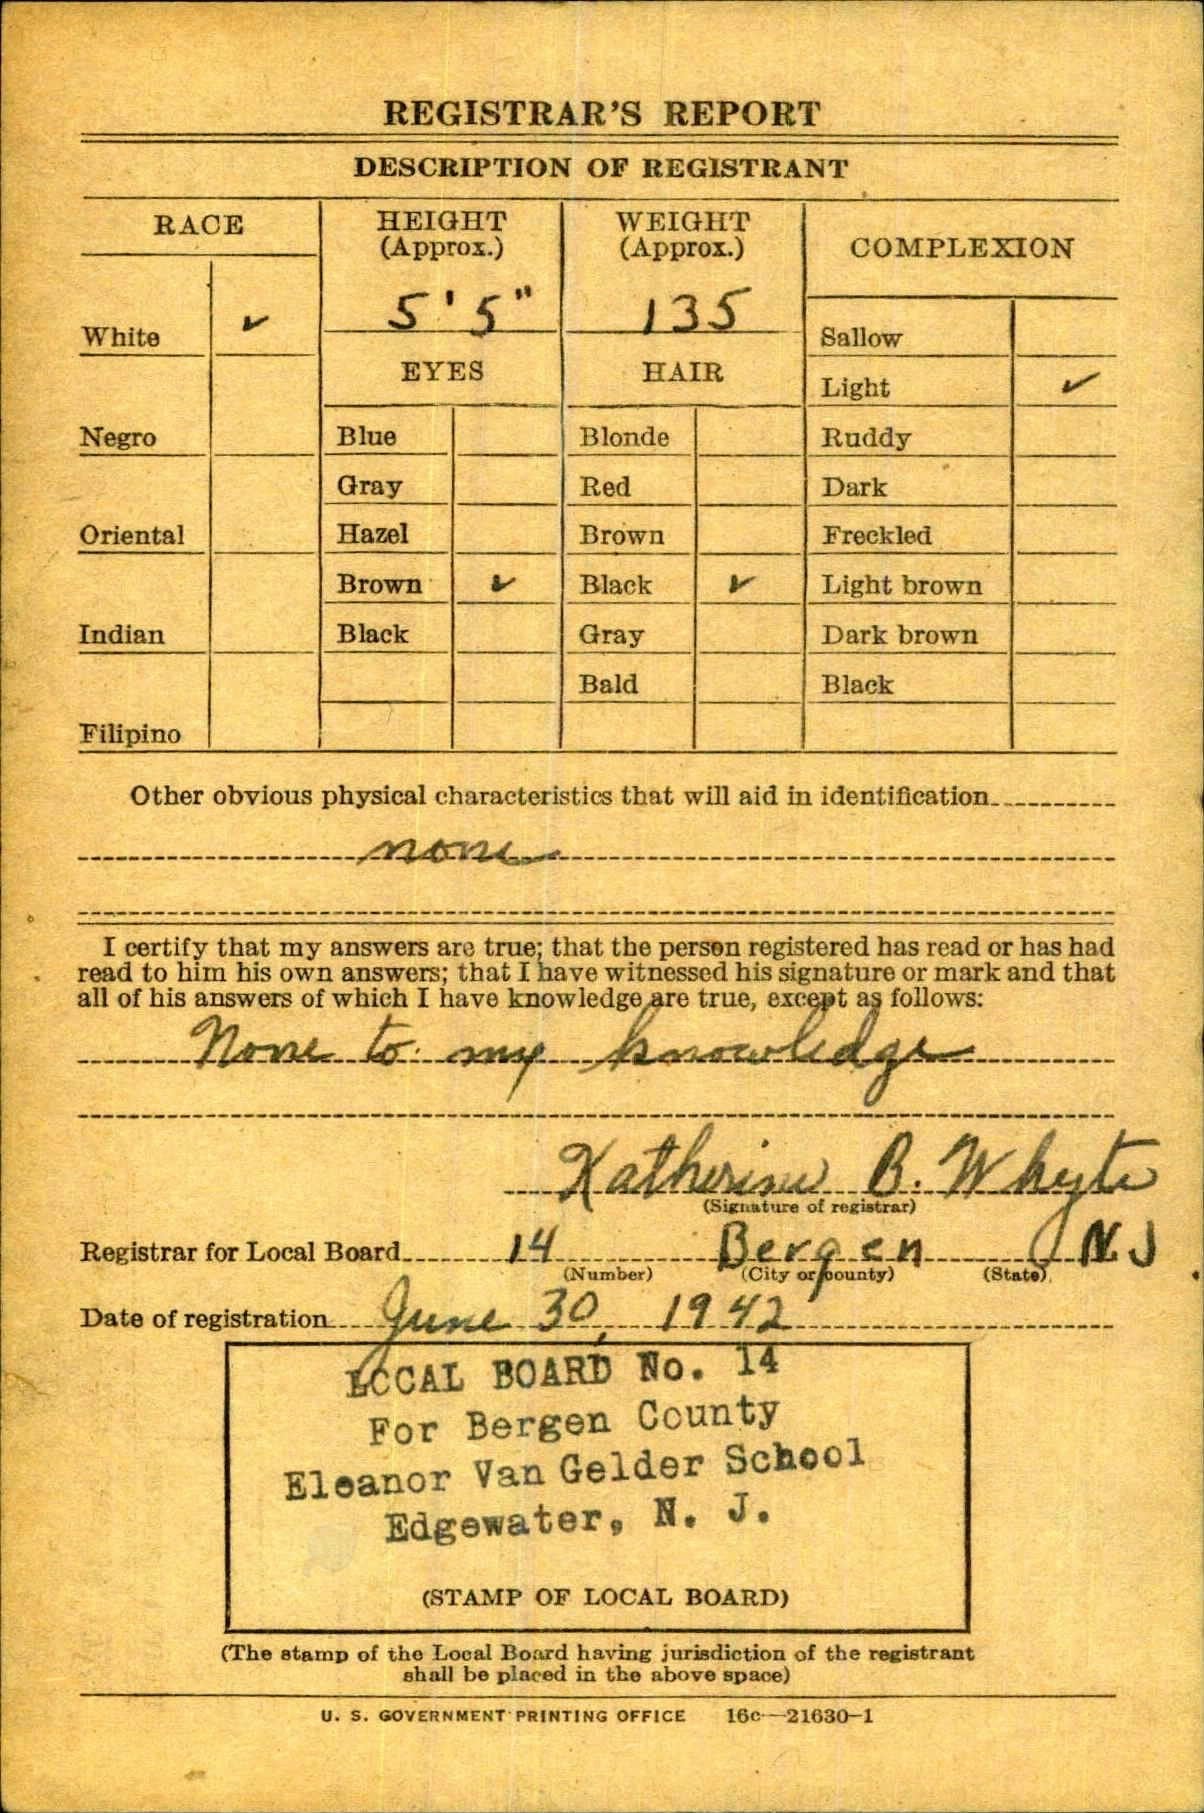 REGISTRAR'S REPORT
DESCRIPTION OF REGISTRANT
RACE
HEIGHT
(Approx.)
WEIGHT
(Approx.)
COMPLEXION
White ✓
5' 5"
135
Sallow
EYES
HAIR
Light ✓
Negro
Blue
Blonde
Ruddy
Gray
Red
Dark
Oriental
Hazel
Brown
Freckled
Brown ✓
Black ✓
Light brown
Indian
Black
Gray
Dark brown
Bald
Black
Filipino
Other obvious physical characteristics that will aid in identification
none
I certify that my answers are true; that the person registered has read or has had
read to him his own answers; that I have witnessed his signature or mark and that
all of his answers of which I have knowledge are true, except as follows:
None to my knowledge
Katherine B. Whyte
(Signature of registrar)
Registrar for Local Board 14 Bergen N.J
(Number) (City or county) (State)
Date of registration June 30, 1942
LOCAL BOARD No. 14
For Bergen County
Eleanor Van Gelder School
Edgewater, N. J.
(STAMP OF LOCAL BOARD)
(The stamp of the Local Board having jurisdiction of the registrant
shall be placed in the above space)
U. S. GOVERNMENT PRINTING OFFICE 16c—21630-1